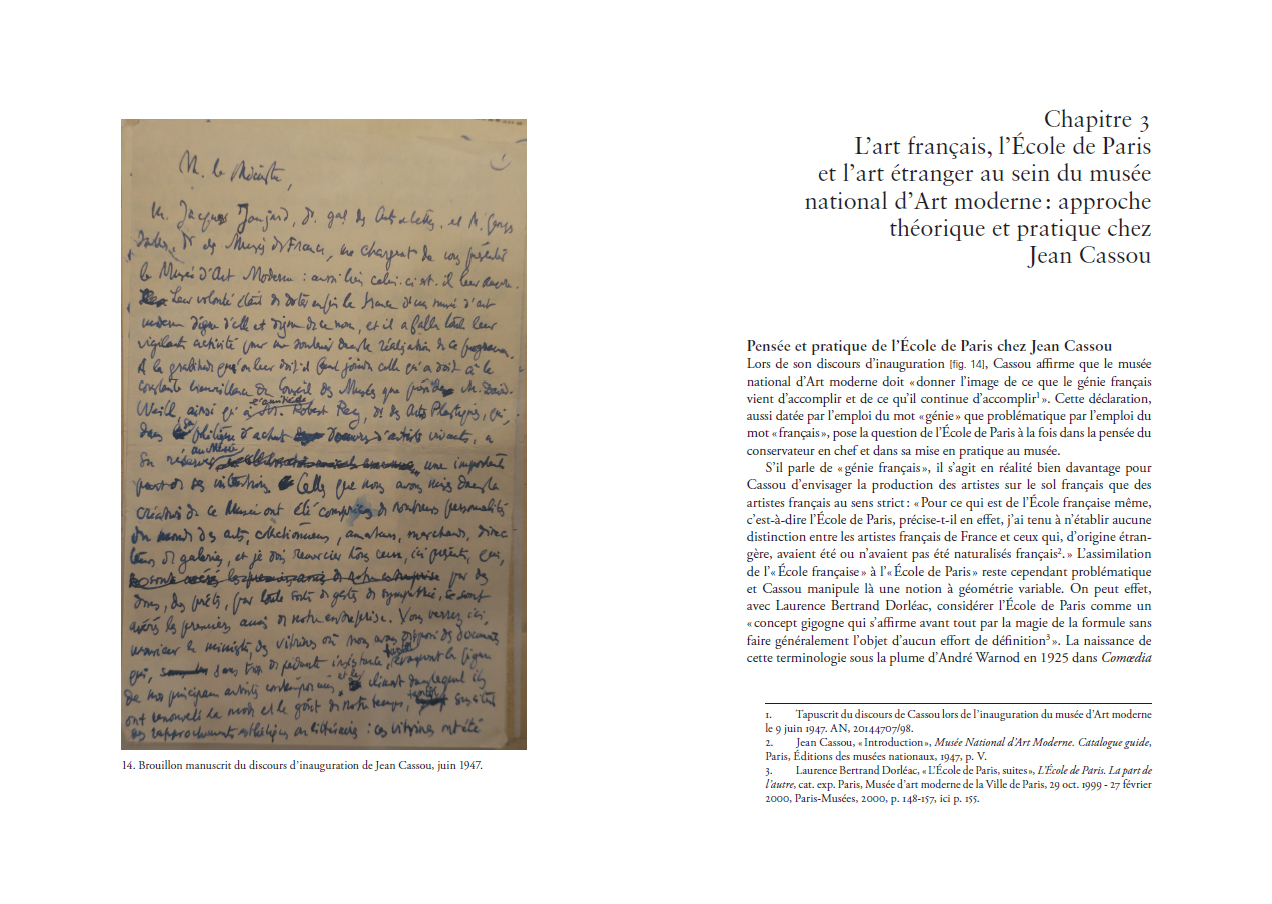 M. le Ministre,
M. Jacques Jaujard, D. gal des Arts et Lettres, et M. Georges
Salles, D. des Musées de France, me chargent de vous présenter
le Musée d'Art Moderne : aussi bien celui-ci est-il leur œuvre.
Leur volonté était de doter enfin la France d'un musée d'art
moderne digne d'elle et digne de ce nom, et il a fallu toute leur
vigilante activité pour me soutenir dans la réalisation de ce programme.
A la gratitude qu'on leur doit il faut joindre celle qu'on doit à la
constante bienveillance du Conseil des Musées que préside M. David-
Weill, ainsi qu'à l'amitié de M. Robert Rey, D. des Arts Plastiques, qui,
dans sa politique d'achat d'artistes vivants, a
su réserver au Musée une importante
part de ses
Celles que nous avons mises dans la
création de ce Musée ont été comprises de nombreuses personnalités
du monde des arts, collectionneurs, amateurs, marchands, direc
teurs de galeries, et je dois remercier tous ceux, ici présents, qui,
par des
dons, des prêts, par toute sorte de gestes de sympathie, se sont
avérés les premiers amis de notre entreprise. Vous verrez ici,
monsieur le ministre, des vitrines où nous avons disposé des documents
qui, sans trop de pédante insistance, évoquent la figure
de nos principaux artistes contemporains, et le climat dans lequel ils
ont renouvelé la mode et le goût de notre temps,
des rapprochements esthétiques ou littéraires : ces vitrines ont été
14. Brouillon manuscrit du discours d'inauguration de Jean Cassou, juin 1947.
Chapitre 3
L'art français, l'École de Paris
et l'art étranger au sein du musée
national d'Art moderne : approche
théorique et pratique chez
Jean Cassou
Pensée et pratique de l'École de Paris chez Jean Cassou
Lors de son discours d'inauguration [fig. 14], Cassou affirme que le musée
national d'Art moderne doit « donner l'image de ce que le génie français
vient d'accomplir et de ce qu'il continue d'accomplir¹ ». Cette déclaration,
aussi datée par l'emploi du mot « génie » que problématique par l'emploi du
mot « français », pose la question de l'École de Paris à la fois dans la pensée du
conservateur en chef et dans sa mise en pratique au musée.
S'il parle de « génie français », il s'agit en réalité bien davantage pour
Cassou d'envisager la production des artistes sur le sol français que des
artistes français au sens strict : « Pour ce qui est de l'École française même,
c'est-à-dire l'École de Paris, précise-t-il en effet, j'ai tenu à n'établir aucune
distinction entre les artistes français de France et ceux qui, d'origine étran-
gère, avaient été ou n'avaient pas été naturalisés français². » L'assimilation
de l'« École française » à l'« École de Paris » reste cependant problématique
et Cassou manipule là une notion à géométrie variable. On peut effet,
avec Laurence Bertrand Dorléac, considérer l'École de Paris comme un
« concept gigogne qui s'affirme avant tout par la magie de la formule sans
faire généralement l'objet d'aucun effort de définition³ ». La naissance de
cette terminologie sous la plume d'André Warnod en 1925 dans Comœdia
1. Tapuscrit du discours de Cassou lors de l'inauguration du musée d'Art moderne
le 9 juin 1947. AN, 20144707/98.
2. Jean Cassou, « Introduction », Musée National d'Art Moderne. Catalogue guide,
Paris, Éditions des musées nationaux, 1947, p. V.
3. Laurence Bertrand Dorléac, « L'École de Paris, suites », L'École de Paris. La part de
l'autre, cat. exp. Paris, Musée d'art moderne de la Ville de Paris, 29 oct. 1999 - 27 février
2000, Paris-Musées, 2000, p. 148-157, ici p. 155.